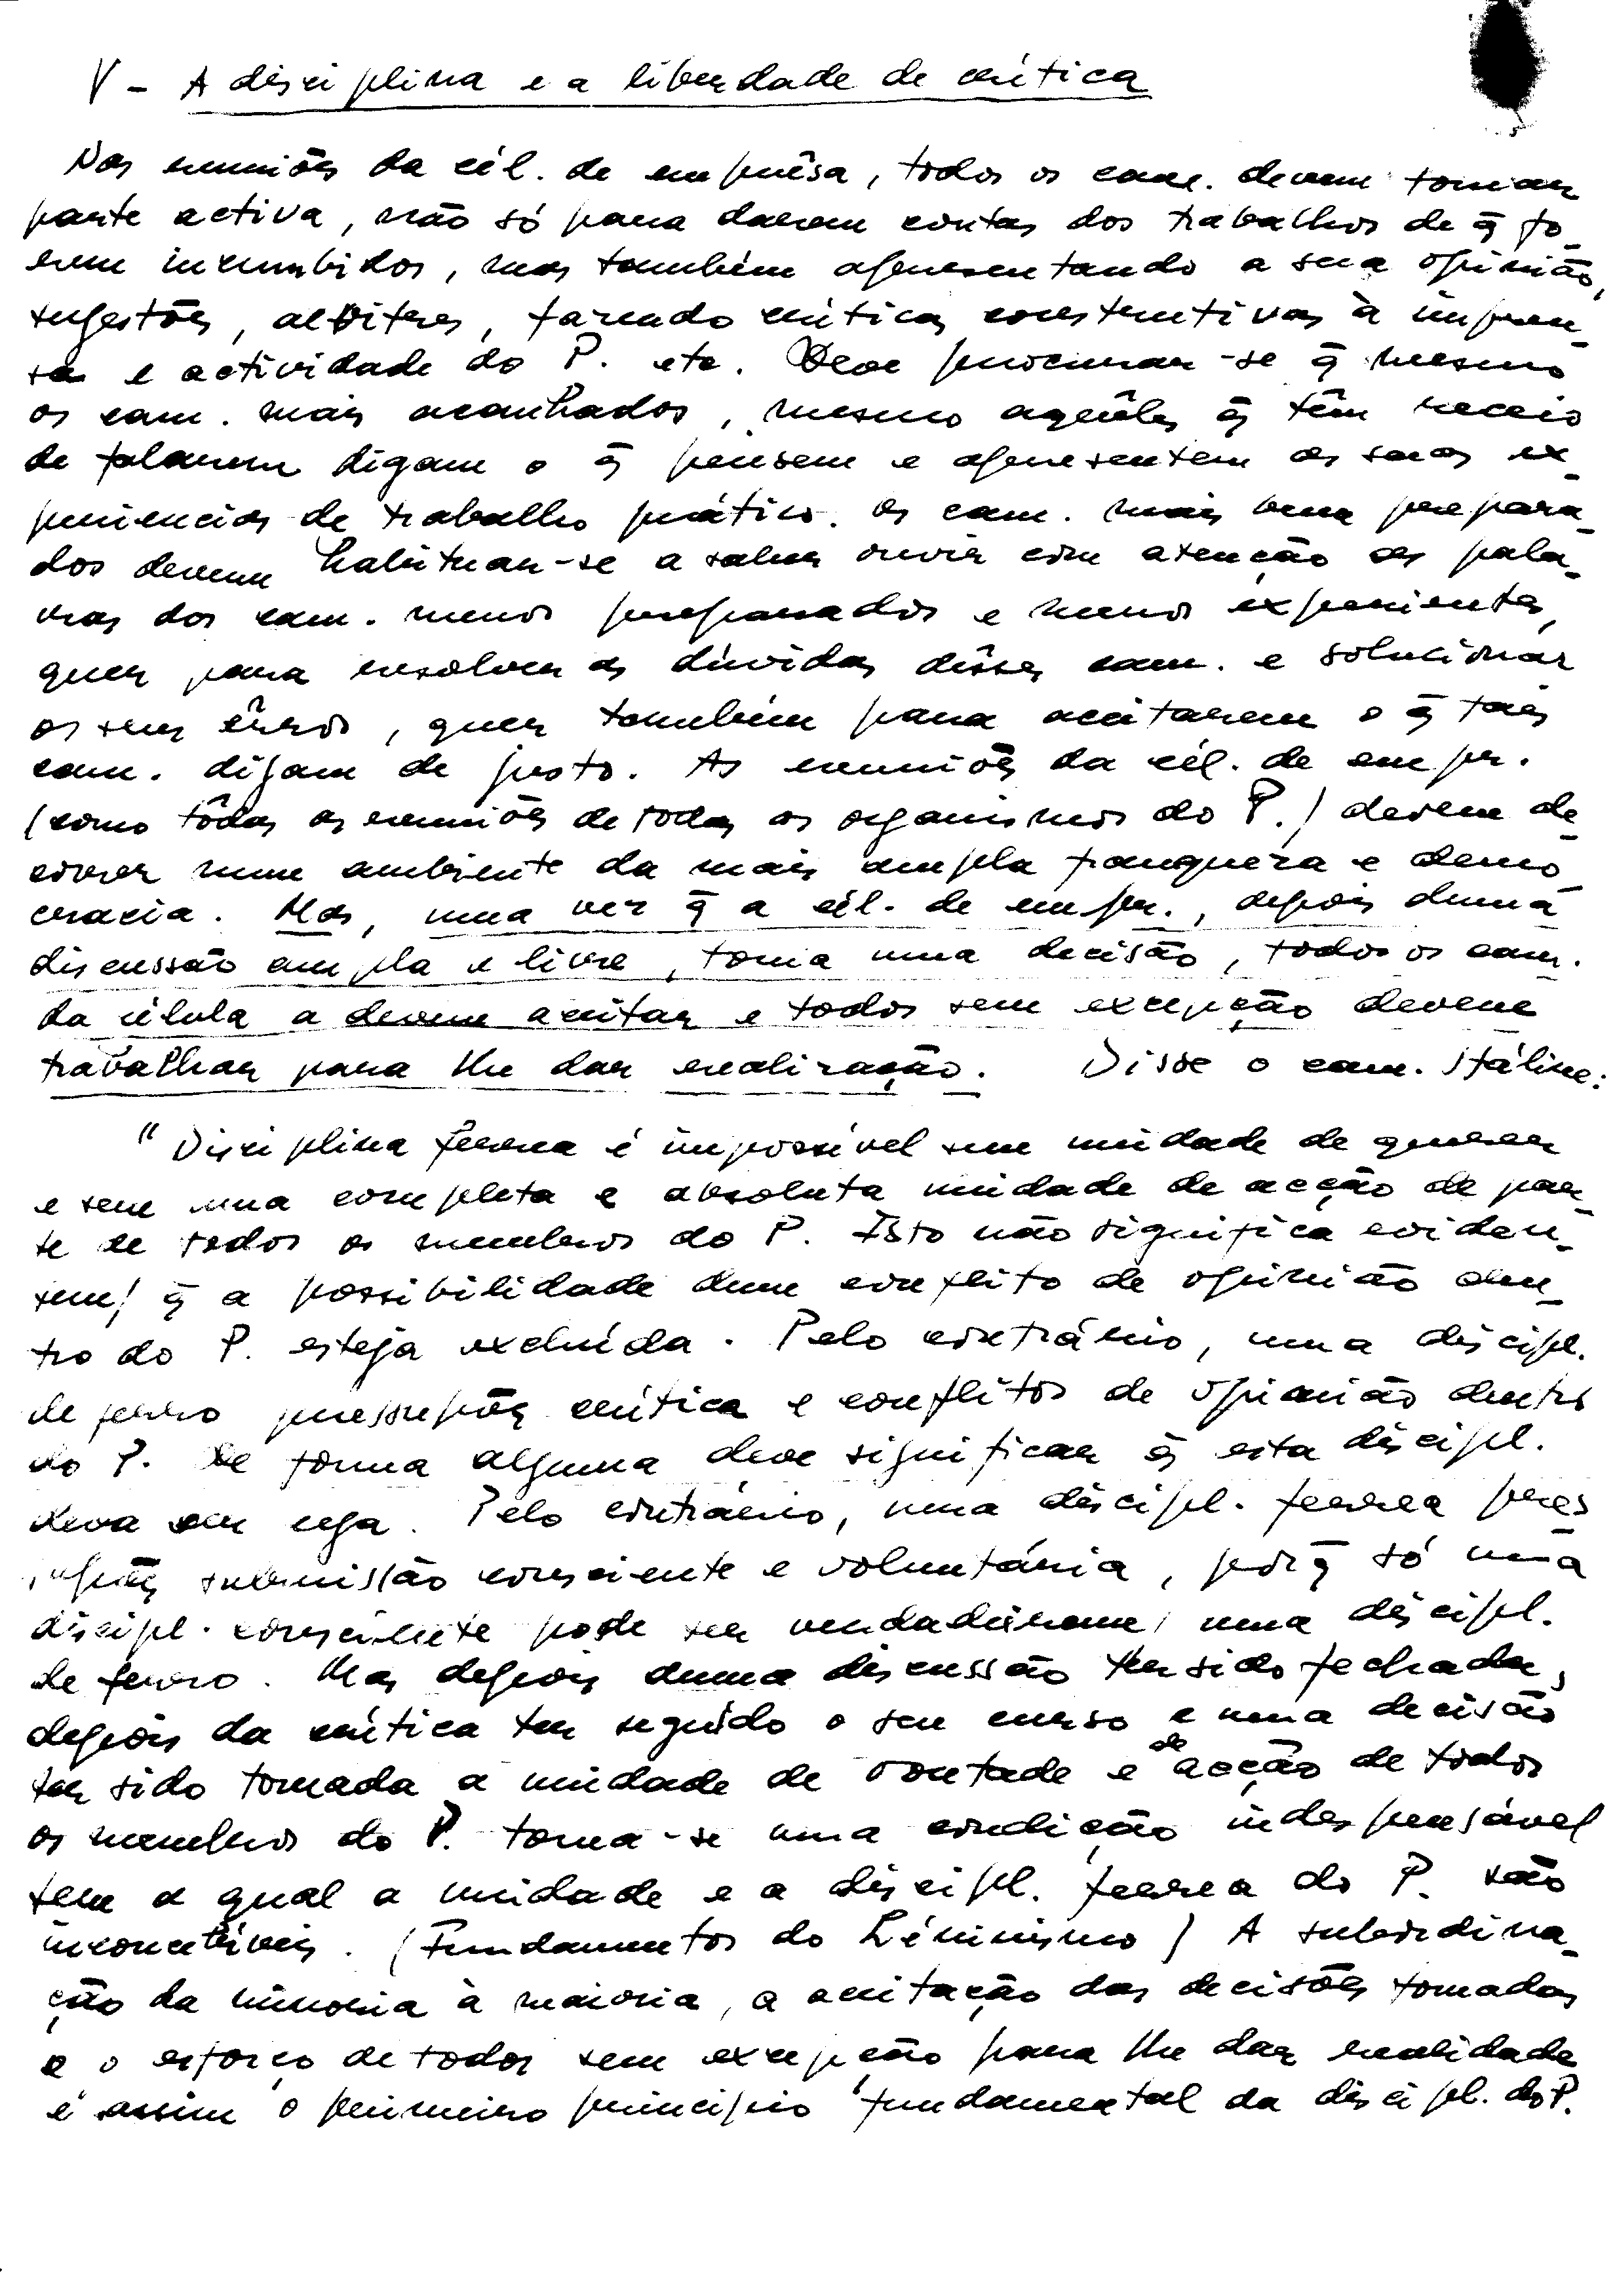 V - A disciplina e a liberdade de crítica
Nas reuniões da cél. de emprêsa, todos os cam. devem tomar
parte activa, não só para darem contas dos trabalhos de q̄ fo-
rem incumbidos, mas também apresentando a sua opinião,
sugestões, alvitres, fazendo críticas construtivas à impren-
sa e actividade do P. etc. Deve procurar-se q̄ mesmo
os cam. mais acanhados, mesmo aquêles q̄ têm receio
de falarem digam o q̄ pensem e apresentem as suas ex-
periencias de trabalho prático. Os cam. mais bem prepara-
dos devem habituar-se a saber ouvir com atenção as pala-
vras dos cam. menos preparados e menos experientes,
quer para resolver as dúvidas dêsses cam. e solucionar
os seus êrros, quer também para aceitarem o q̄ tais
cam. digam de justo. As reuniões da cél. de empr.
(como tôdas as reuniões de todos os organismos do P.) devem de-
correr num ambiente da mais ampla franqueza e demo-
cracia. Mas, uma vez q̄ a cél. de empr., depois duma
discussão ampla e livre, toma uma decisão, todos os cam.
da célula a devem aceitar e todos sem excepção devem
trabalhar para lhe dar realização. Disse o cam. Stáline:
"Disciplina férrea é impossível sem unidade de querer
e sem uma completa e absoluta unidade de acção de par-
te de todos os membros do P. Isto não significa eviden-
tem/ q̄ a possibilidade dum conflito de opinião den-
tro do P. esteja excluída. Pelo contrário, uma discipl.
de ferro pressupões crítica e conflitos de opinião dentro
do P. De forma alguma deve significar q̄ esta discipl.
deva ser cega. Pelo contrário, uma discipl. ferrea pres
supões submissão consciente e voluntária, porq̄ só uma
discipl. consciente pode ser verdadeiram/ uma discipl.
de ferro. Mas depois duma discussão ter sido fechada,
depois da crítica ter seguido o seu curso e uma decisão
ter sido tomada a unidade de vontade e de acção de todos
os membros do P. torna-se uma condição indespensável
sem a qual a unidade e a discipl. ferrea do P. são
inconcebíveis. (Fundamentos do Léninismo) A subordina-
ção da minoria à maioria, a aceitação das decisões tomadas
e o esforço de todos sem excepção para lhe dar realidade
é assim o primeiro princípio fundamental da discipl. do P.